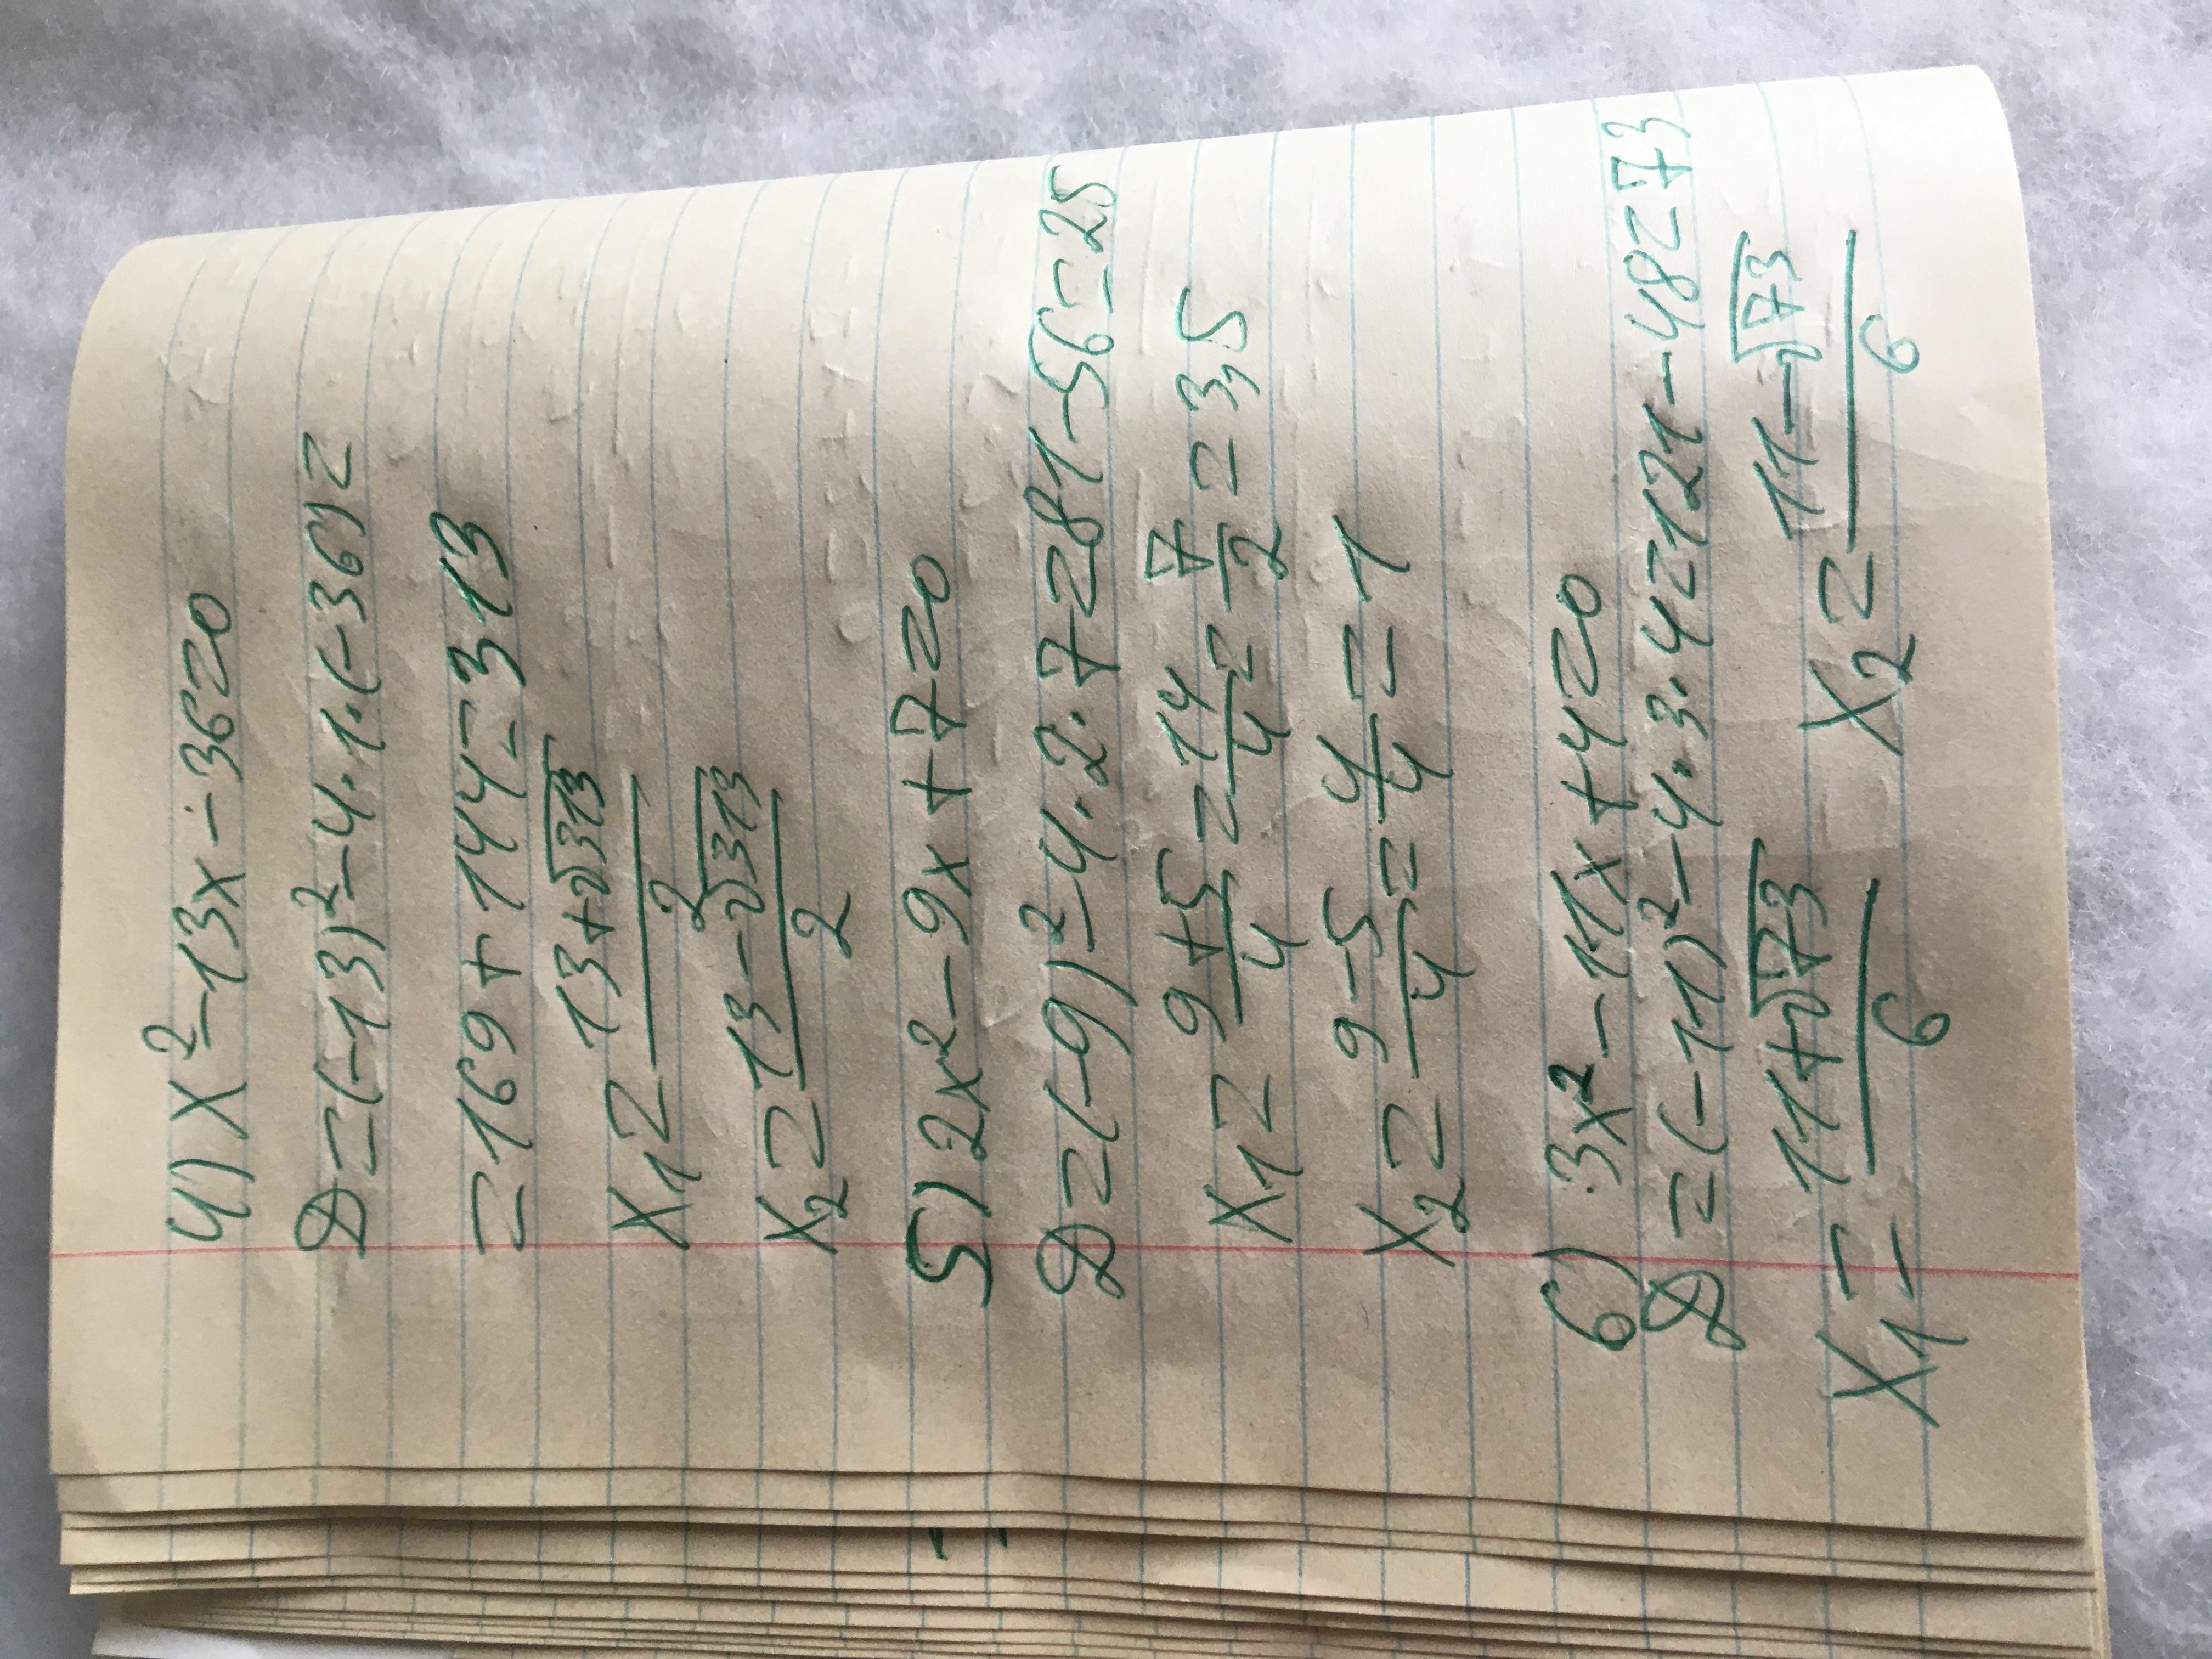 4) x²-13x-36=0
D=(-13)²-4·1·(-36)=
=169+144=313
x₁=(13+√313)/2
x₂=(13-√313)/2
5) 2x²-9x+7=0
D=(-9)²-4·2·7=81-56=25
x₁=(9+5)/4=14/4=7/2=3,5
x₂=(9-5)/4=4/4=1
6) 3x²-11x+4=0
D=(-11)²-4·3·4=121-48=73
x₁=(11+√73)/6 x₂=(11-√73)/6